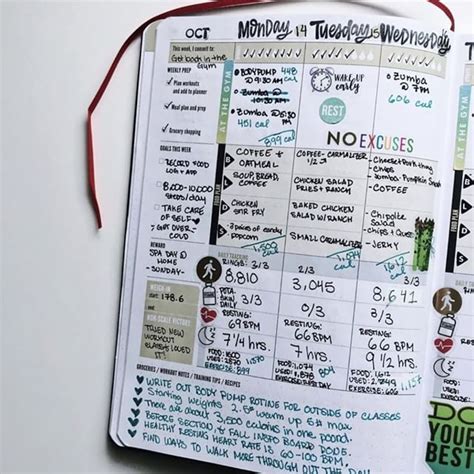 OCT
Monday 14 Tuesday 15 Wednesday
This week, I commit to:
Get back in the
Gym
WEEKLY PREP
Plan workouts
and add to planner
Meal plan and prep
Grocery shopping
AT THE GYM
BODYPUMP 448
@ 9:30 AM cal
Zumba @
10:30 AM
Zumba @ 5:30
PM
451 cal
899 cal
WAKE UP
early
REST
Zumba
@ 7pm
606 cal
NO EXCUSES
GOALS THIS WEEK
RECORD FOOD
LOG + APP
8,000-10,000
Steps/day
TAKE CARE
OF SELF
GET OVER
COLD
REWARD
SPA DAY @
HOME
-SUNDAY-
WEIGH-IN
start: 178.6
NON-SCALE VICTORY
TRIED NEW
WORKOUT
CLASSES LOVED
IT!
FOOD PLAN
B
COFFEE +
OATMEAL
COFFEE-CARMALIZER
1/2
L
SOUP, BREAD,
COFFEE
CHICKEN SALAD
FRIES + RANCH
- COFFEE
D
CHICKEN
STIR FRY
BAKED CHICKEN
SALAD W/RANCH
- Chipotle
Salad
chips + Queso
3 pieces of candy
popcorn
1,600
cal
SMALL CARMALIZER
1,074
cal
- JERKY
1,612
cal
DAILY TRACKING
RINGS: 3/3
0/3
3/3
8,810
3,045
8,641
3/3
3/3
3/3
RESTING:
69 BPM
RESTING:
66 BPM
RESTING:
66 BPM
7 1/4 hrs
7 hrs.
9 1/2 hrs
EXERCISE: 899
GROCERIES / WORKOUT NOTES / TRAINING TIPS / RECIPES
WRITE OUT BODY PUMP ROTINE FOR OUTSIDE OF CLASSES
Starting weights
There are about 3,500 calories in one pound.
BEFORE SECTION & FALL INSPO BOARD DODS.
HEALTHY RESTING HEART RATE IS 60-100 BPM.
FIND WAYS TO WALK MORE THROUGH OUT THE DAY
DO
YOUR
BEST